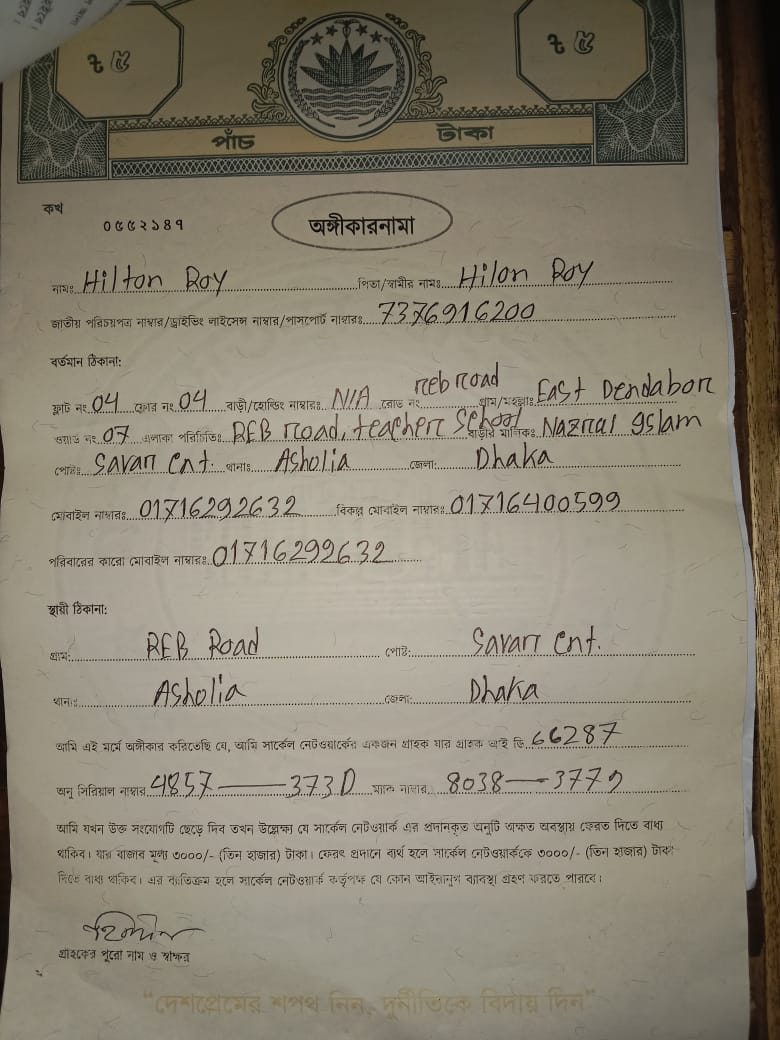 ৳ ৫ ৳ ৫
পাঁচ টাকা
কখ
০৫৫২১৪৭
অঙ্গীকারনামা
নামঃ Hilton Roy পিতা/স্বামীর নামঃ Hilon Roy
জাতীয় পরিচয়পত্র নাম্বার/ড্রাইভিং লাইসেন্স নাম্বার/পাসপোর্ট নাম্বারঃ 7376916200
বর্তমান ঠিকানা:
ফ্লাট নং 04 ফ্লোর নং 04 বাড়ী/হোল্ডিং নাম্বারঃ N/A রোড নং reb road গ্রাম/মহল্লাঃ East Dendabor
ওয়ার্ড নং 07 এলাকা পরিচিতিঃ REB road, teacher School বাড়ীর মালিকঃ Nazrul Islam
পোষ্টঃ Savar Cnt. থানাঃ Asholia জেলা: Dhaka
মোবাইল নাম্বারঃ 01716292632 বিকল্প মোবাইল নাম্বারঃ 01716400599
পরিবারের কারো মোবাইল নাম্বারঃ 01716299632
স্থায়ী ঠিকানা:
গ্রাম: REB Road পোষ্ট: Savar Cnt.
থানাঃ Asholia জেলা: Dhaka
আমি এই মর্মে অঙ্গীকার করিতেছি যে, আমি সার্কেল নেটওয়ার্কের একজন গ্রাহক যার গ্রাহক আই ডি 66287
অনু সিরিয়াল নাম্বার 4857——373D ম্যাক নাম্বার 8038——3779
আমি যখন উক্ত সংযোগটি ছেড়ে দিব তখন উল্লেক্ষ্য যে সার্কেল নেটওয়ার্ক এর প্রদানকৃত অনুটি অক্ষত অবস্থায় ফেরত দিতে বাধ্য
থাকিব। যার বাজার মূল্য ৩০০০/- (তিন হাজার) টাকা। ফেরৎ প্রদানে ব্যর্থ হলে সার্কেল নেটওয়ার্ককে ৩০০০/- (তিন হাজার) টাকা
দিতে বাধ্য থাকিব। এর ব্যতিক্রম হলে সার্কেল নেটওয়ার্ক কর্তৃপক্ষ যে কোন আইনানুগ ব্যাবস্থা গ্রহণ করতে পারবে।
গ্রাহকের পুরো নাম ও স্বাক্ষর
“দেশপ্রেমের শপথ নিন, দুর্নীতিকে বিদায় দিন”